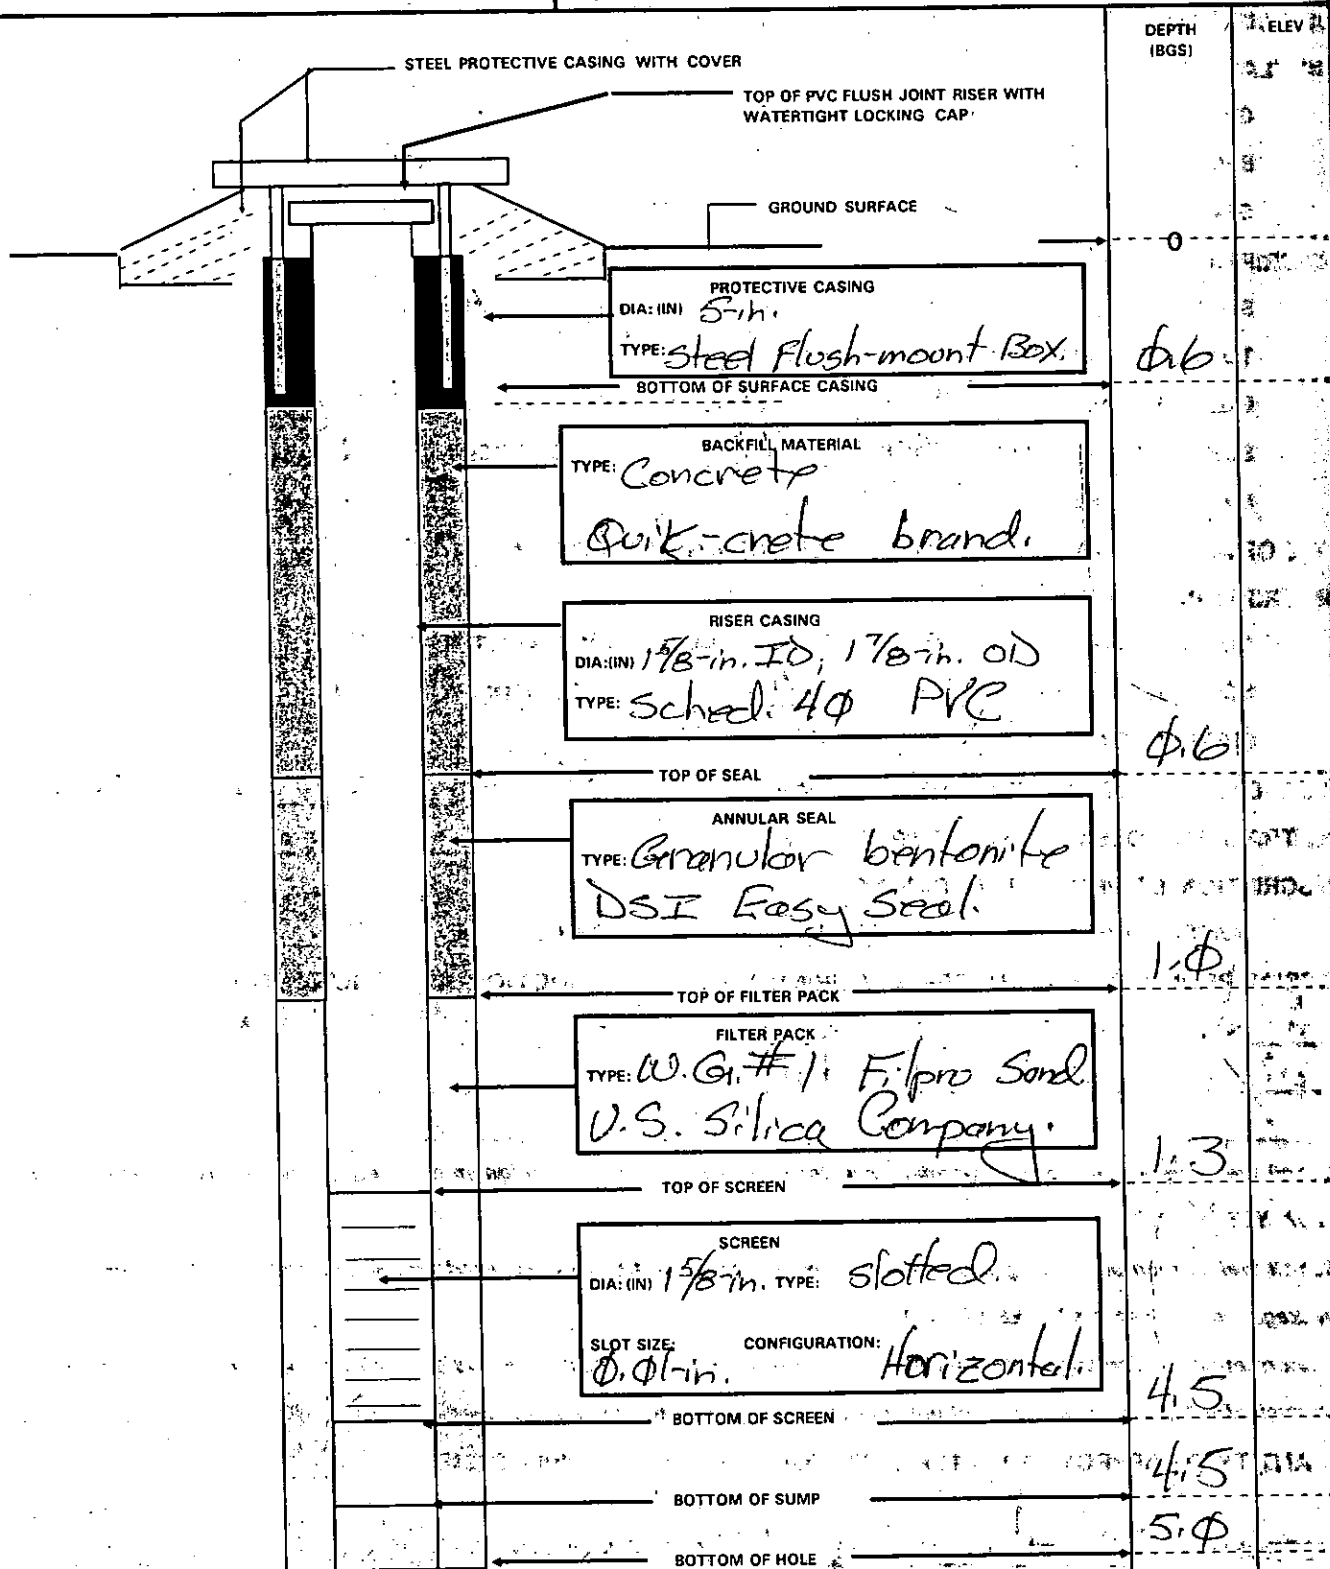 DEPTH
(BGS)
ELEV
STEEL PROTECTIVE CASING WITH COVER
TOP OF PVC FLUSH JOINT RISER WITH
WATERTIGHT LOCKING CAP
GROUND SURFACE
0
PROTECTIVE CASING
DIA: (IN) 5-in.
TYPE: Steel Flush-mount Box.
0.6
BOTTOM OF SURFACE CASING
BACKFILL MATERIAL
TYPE: Concrete
Quik-crete brand.
RISER CASING
DIA:(IN) 1 5/8-in. ID, 1 7/8-in. OD
TYPE: Sched. 40 PVC
0.6
TOP OF SEAL
ANNULAR SEAL
TYPE: Granular bentonite
DSI Easy Seal.
1.0
TOP OF FILTER PACK
FILTER PACK
TYPE: W.G. #1 Filpro Sand
U.S. Silica Company.
1.3
TOP OF SCREEN
SCREEN
DIA: (IN) 1 5/8-in. TYPE: slotted.
SLOT SIZE: CONFIGURATION:
0.01-in. Horizontal.
4.5
BOTTOM OF SCREEN
4.5
BOTTOM OF SUMP
5.0
BOTTOM OF HOLE